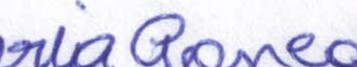 ria Romeo